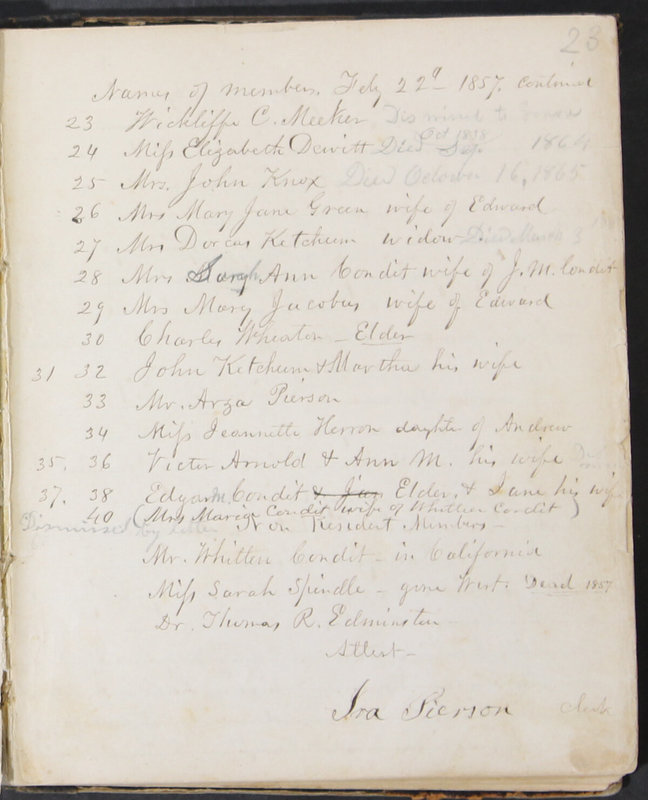 23
Names of members. Feby 22d 1857. Continued
23 Wickliffe C. Meeker Dismissed to
24 Miss Elizabeth Dewitt Died Sep. Oct 1838 1864
25 Mrs. John Knox Died October 16, 1865
26 Mrs Mary Jane Green wife of Edward
27 Mrs Dorcas Ketchum widow Died March 3
28 Mrs Sarah Ann Condit wife of J. M. Condit
29 Mrs Mary Jacobus wife of Edward
30 Charles Wheaton - Elder
31 32 John Ketchum & Martha his wife
33 Mr. Arza Pierson
34 Miss Jeannette Herron daughter of Andrew
35. 36 Victor Arnold & Ann M. his wife
37. 38 Edgar M. Condit & Jas Elder, & Jane his wife
40 (Mrs Maria Condit wife of Whitten Condit)
Dismissed by letter Non Resident Members -
Mr. Whitten Condit - in California
Miss Sarah Spindle - gone West. Dead 1857
Dr. Thomas R. Edminster
Attest -
Ira Pierson Clerk